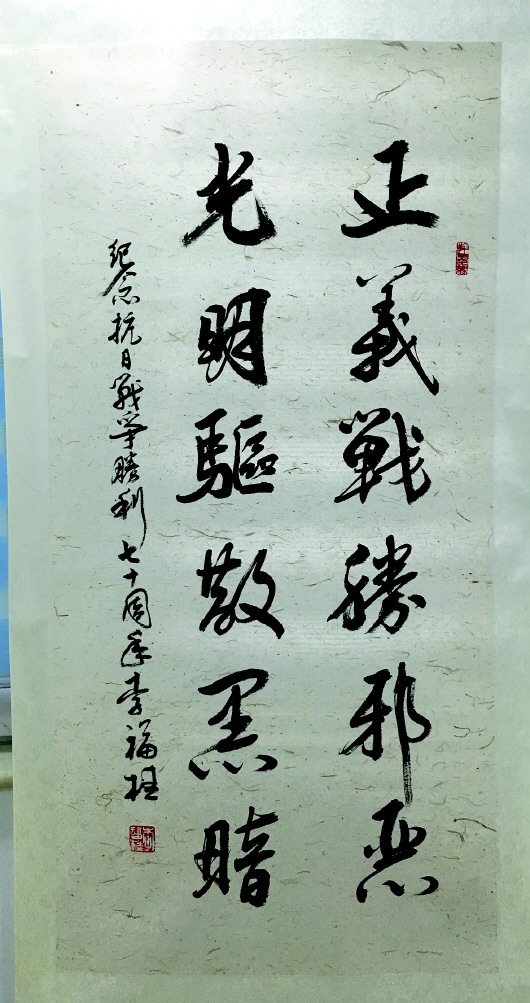 正義戰勝邪惡
光明驅散黑暗
紀念抗日戰爭勝利七十周年李福桂